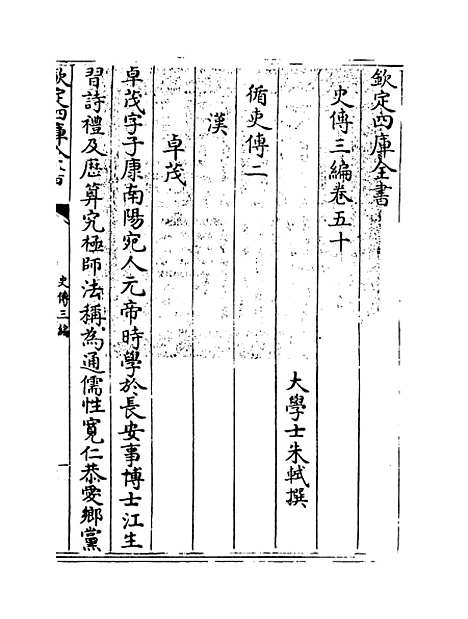 欽定四庫全書
史傳三編卷五十
大學士朱軾撰
循吏傳二
漢
卓茂
卓茂字子康南陽宛人元帝時學於長安事博士江生
習詩禮及歷算究極師法稱為通儒性寬仁恭愛鄉黨
欽定四庫全書
史傳三編
一